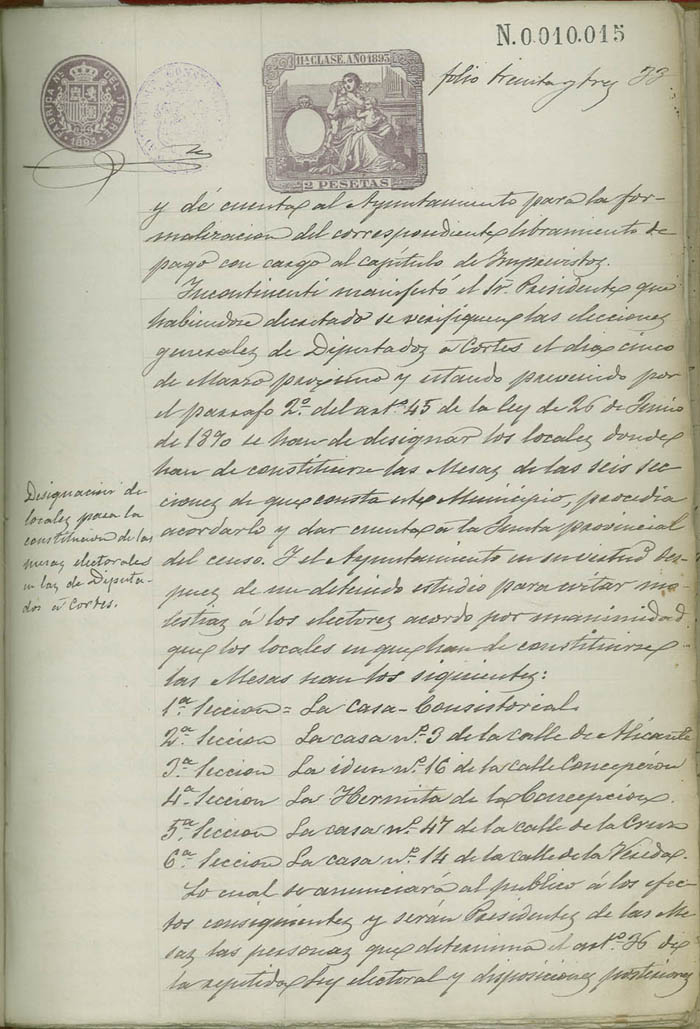 N.0.010.015
11ª CLASE, AÑO 1893
FÁBRICA Nal. DEL TIMBRE
1893
2 PESETAS
folio treinta y tres 33
y dé cuenta al Ayuntamiento para la for-
malizacion del correspondiente libramiento de
pago con cargo al capítulo de Imprevistos.
Incontinenti manifestó el Sr. Presidente que
habiendose decretado se verifiquen las elecciones
generales de Diputados á Cortes el dia cinco
de Marzo proximo y estando prevenido por
el parrafo 2º. del artº. 45 de la ley de 26 de Junio
de 1890 se han de designar los locales donde
han de constituirse las Mesas de las seis sec
ciones de que consta este Municipio, procedia
acordarlo y dar cuenta á la Junta provincial
del censo. Y el Ayuntamiento en su virtud des-
pues de un detenido estudio para evitar mo-
lestias á los electores acordo por unanimidad
que los locales en que han de constituirse
las Mesas sean los siguientes:
1ª. Seccion = La Casa-Consistorial.
2ª. Seccion La casa nº. 3 de la calle de Alicante
3ª. Seccion La idem nº. 16 de la calle Concepcion
4ª. Seccion La Hermita de la Concepcion.
5ª. Seccion La casa nº. 47 de la calle de la Cruz
6ª. Seccion La casa nº. 14 de la calle de la Vereda.
Lo cual se anunciará al publico á los efec-
tos consiguientes y serán Presidentes de las Me-
sas las personas que determina el artº. 36 de
la repetida Ley electoral y disposiciones posteriores
Designacion de
locales para la
constitucion de las
mesas electorales
en las de Diputa-
dos á Cortes.